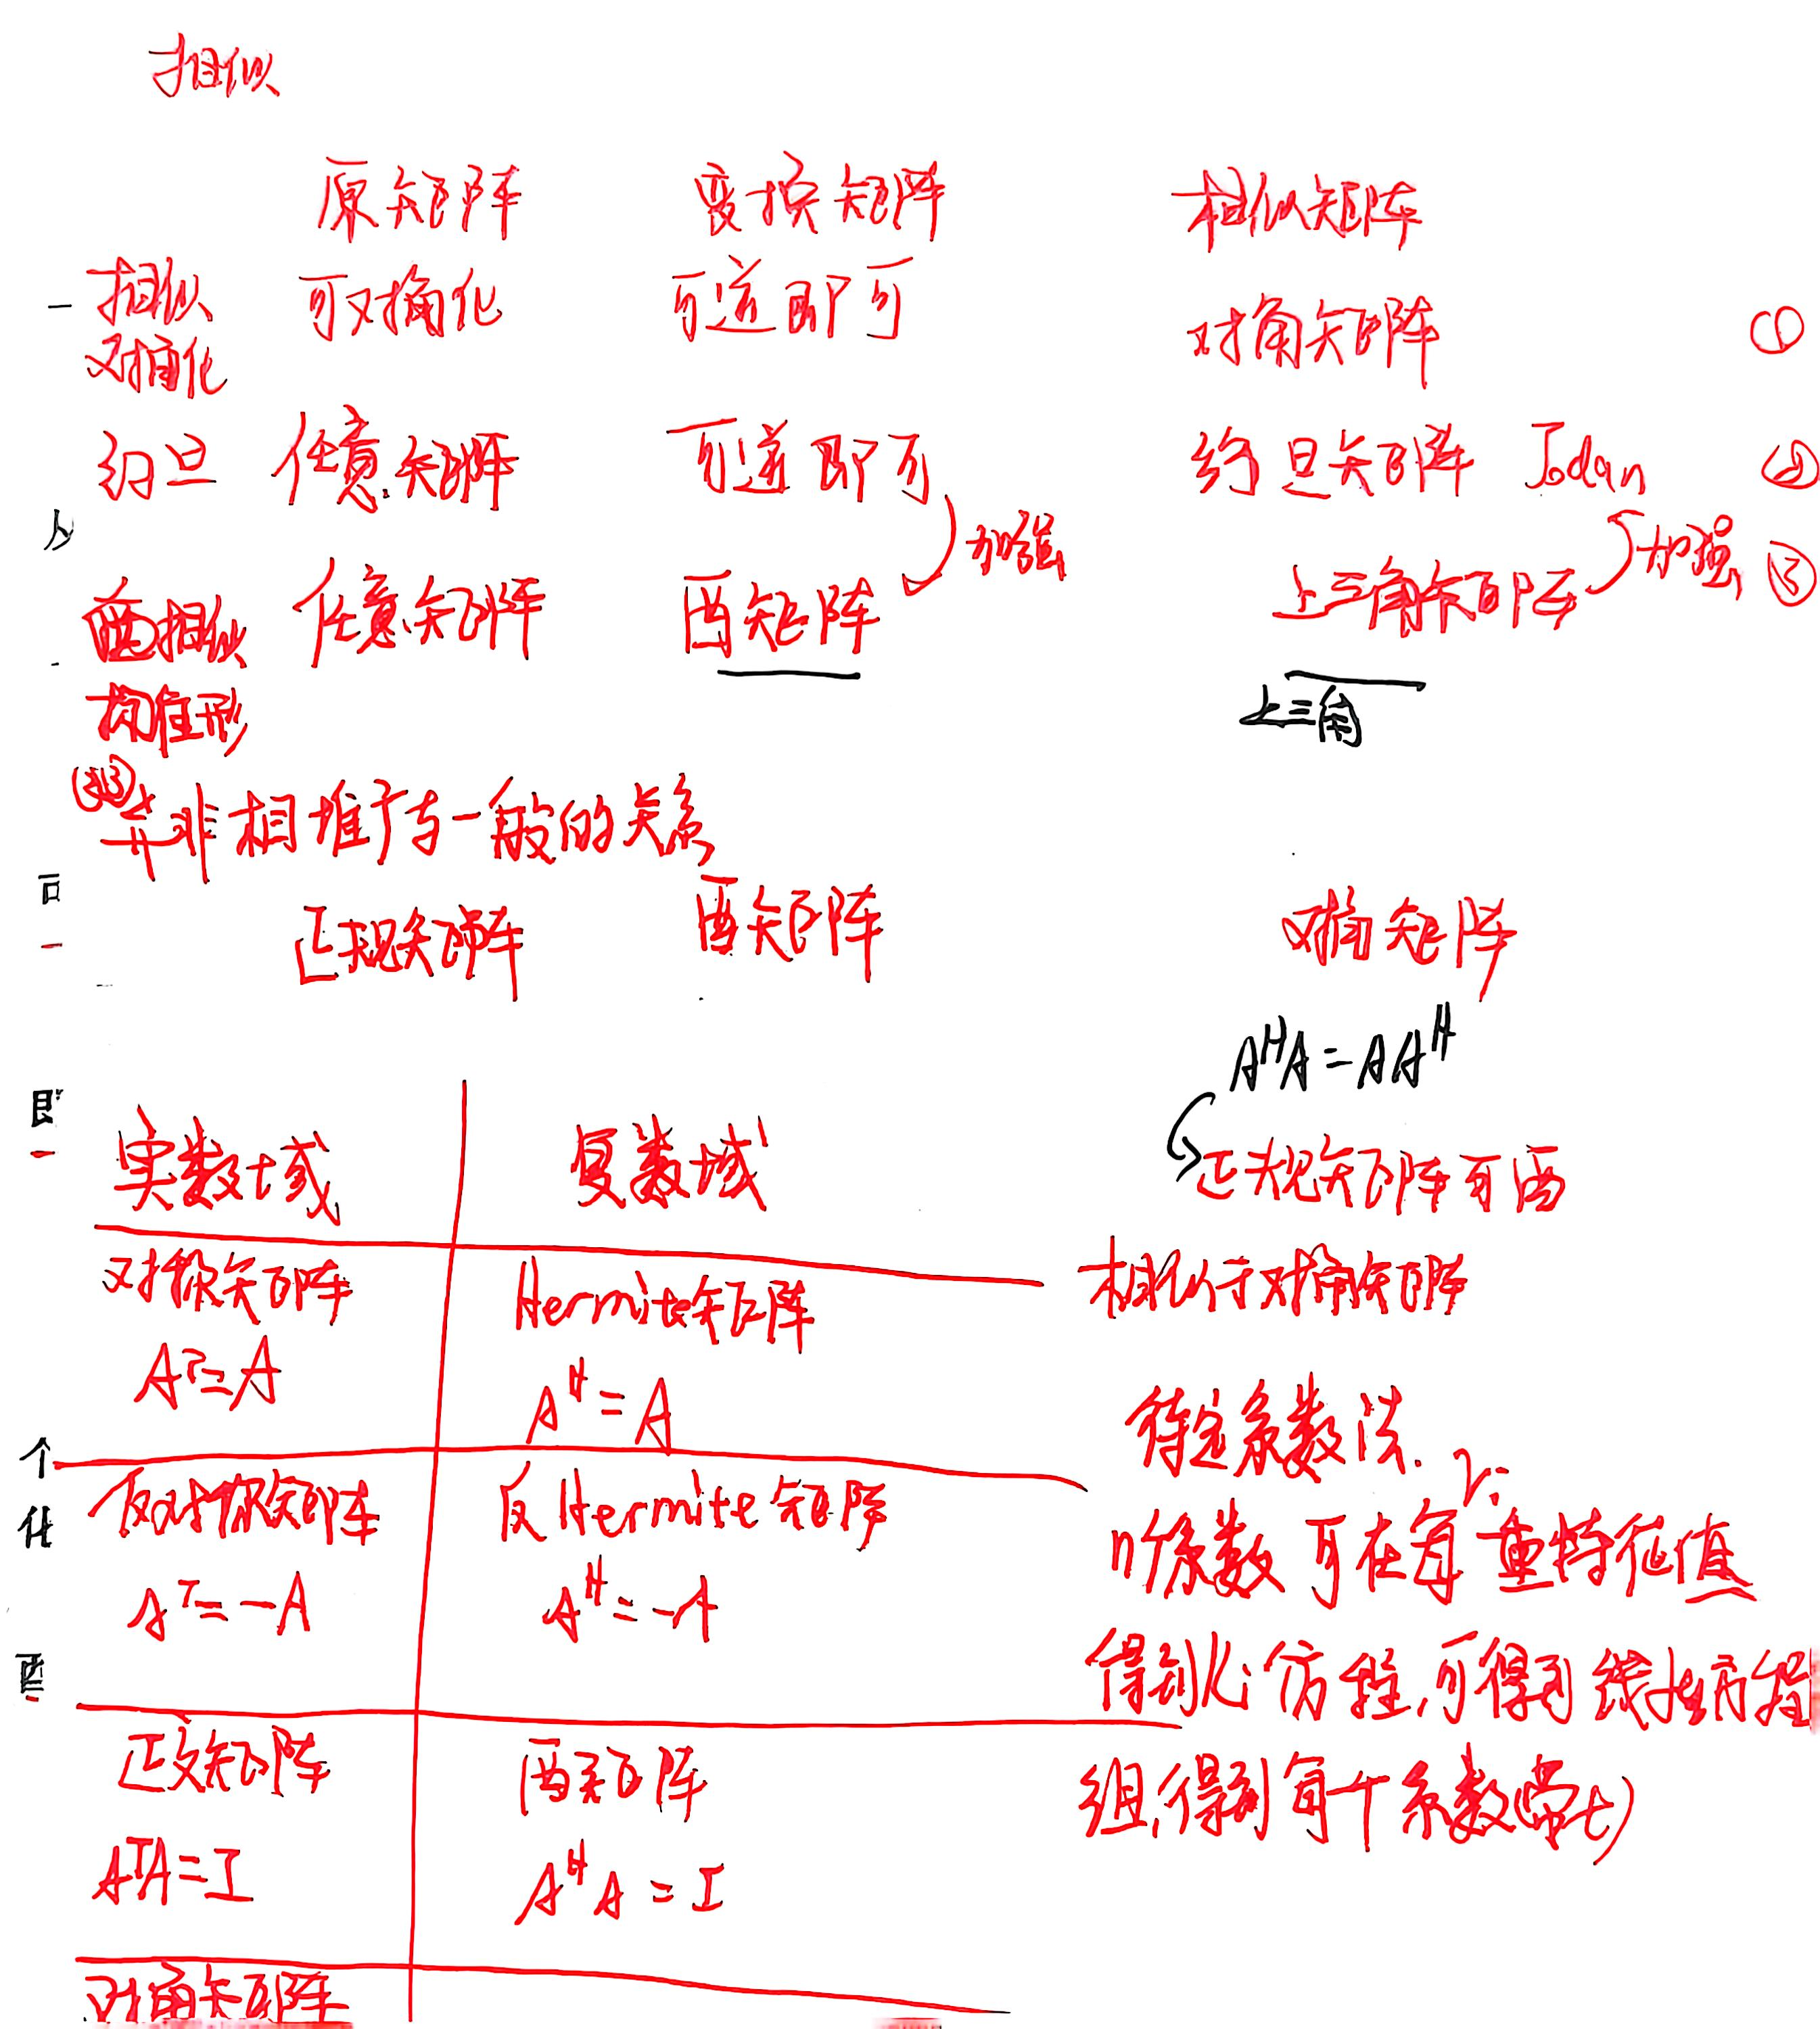 相似
原矩阵 变换矩阵 相似矩阵
相似 可对角化 可逆即可 对角矩阵 ①
对角化
约旦 任意矩阵 可逆即可 约旦矩阵 Jodan ②
加强 加强
酉相似 任意矩阵 酉矩阵 上三角矩阵 ③
标准形 上三角
②③并非相堆广与一般的关系
正规矩阵 酉矩阵 对角矩阵
AᴴA=AAᴴ
实数域 复数域 正规矩阵可酉
对称矩阵 Hermite矩阵 相似于对角矩阵
Aᵀ=A Aᴴ=A
待定系数法.
反对称矩阵 反Hermite矩阵
n个系数 可在每 rᵢ 重特征值
Aᵀ=-A Aᴴ=-A
得到 rᵢ 方程,可得到 线性方程
正交矩阵 酉矩阵
组,得到每个系数(带t)
AᵀA=I AᴴA=I
对角矩阵